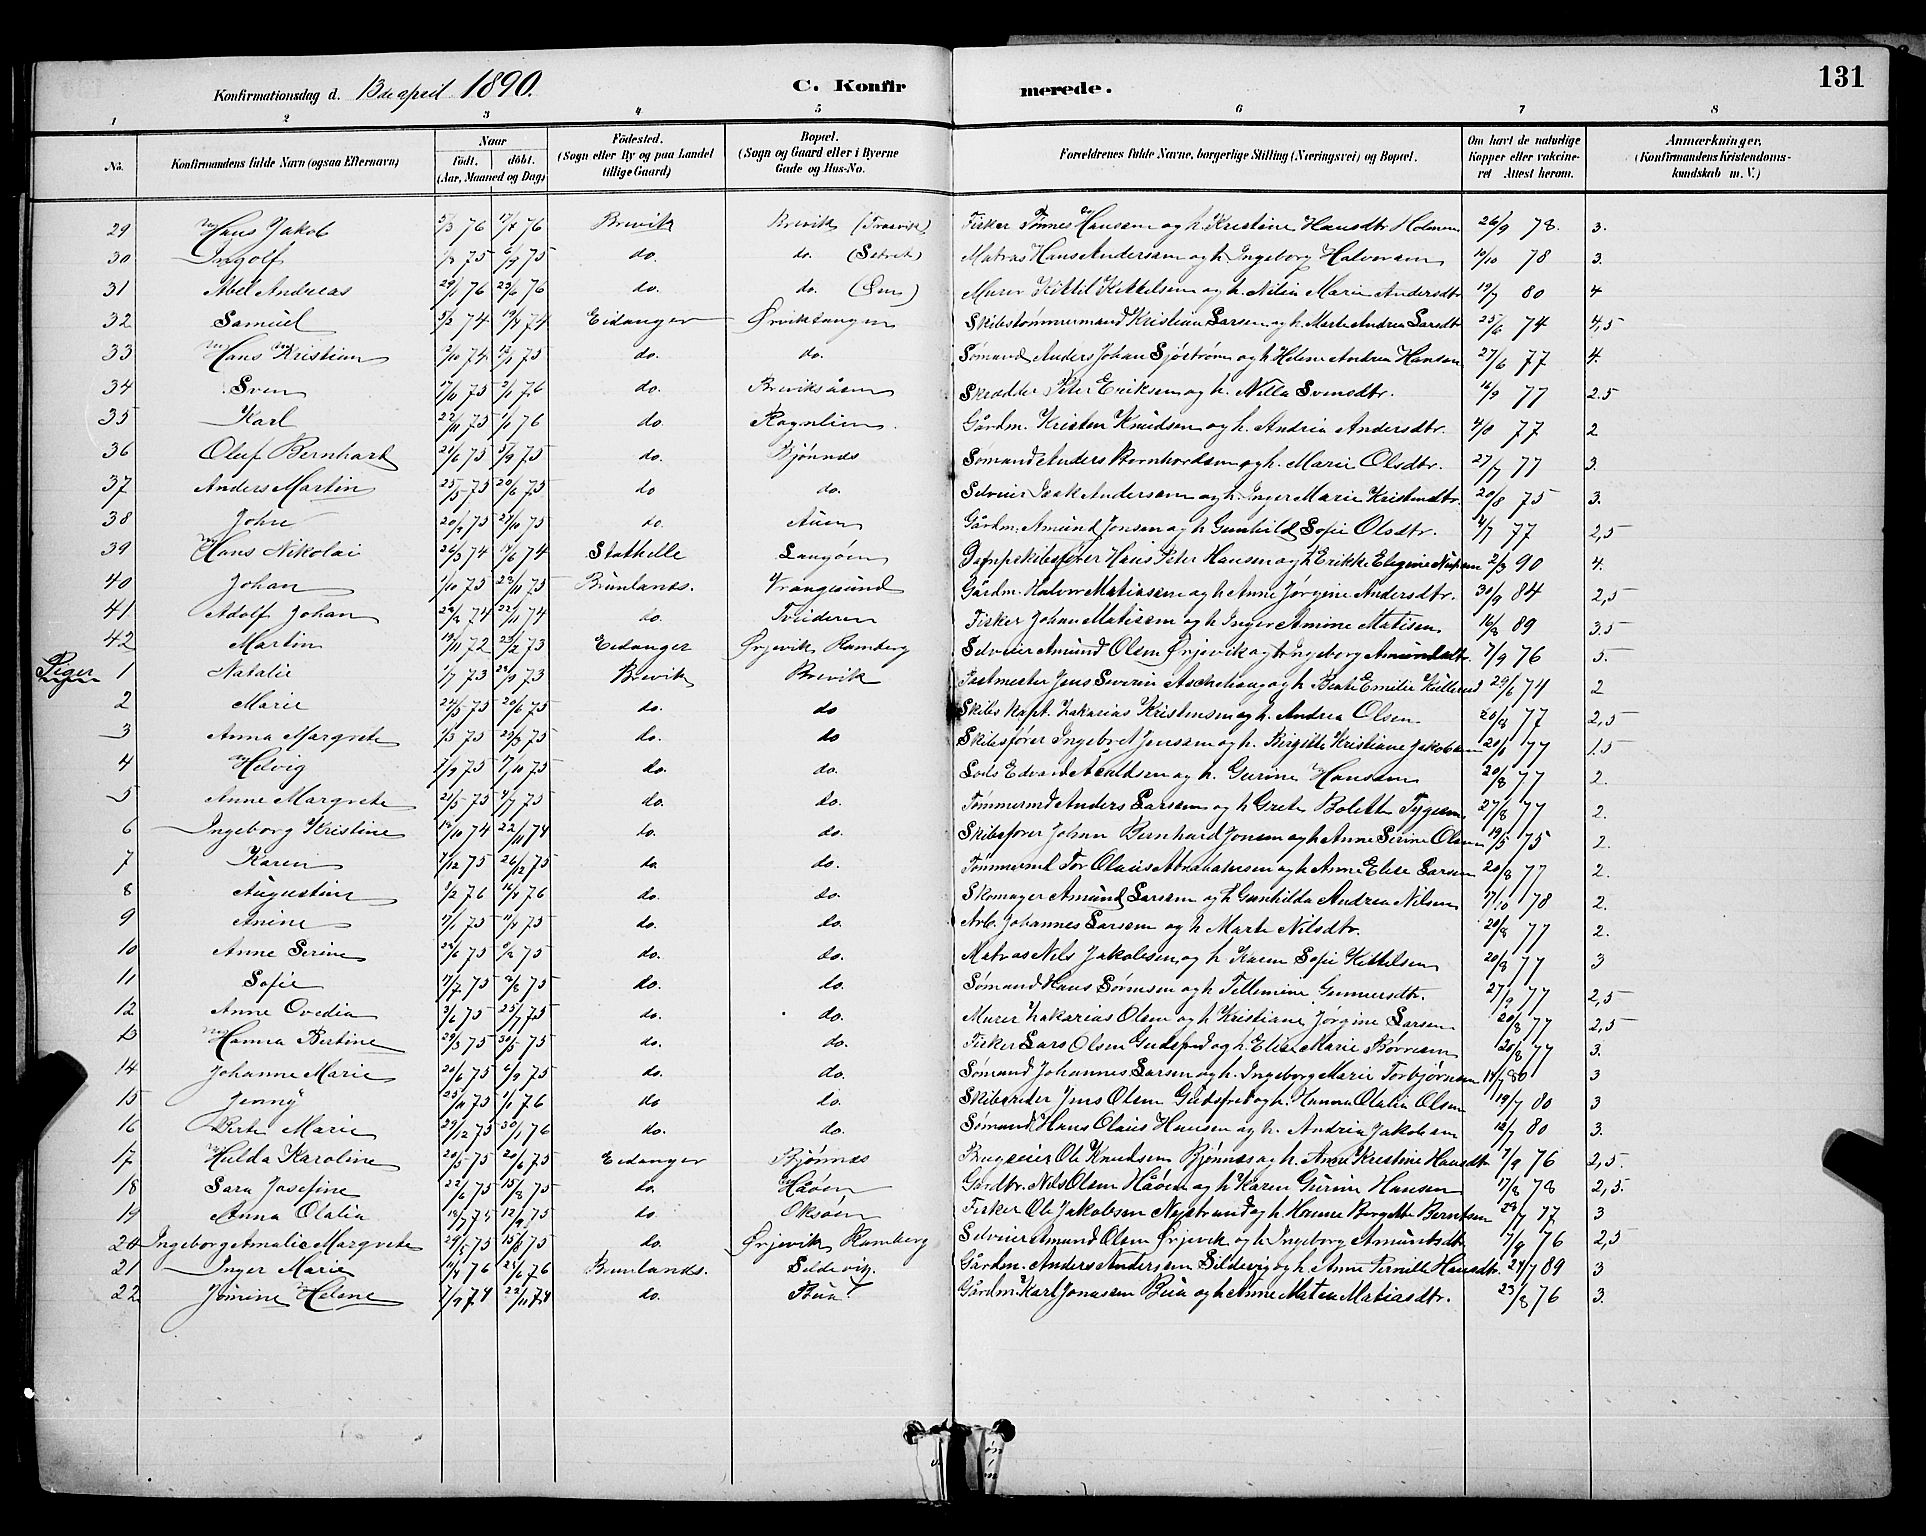 131
Konfirmationsdag d. 13de april 1890. C. Konfirmerede.
1 2 3 4 5 6 7 8
No. Konfirmandens fulde Navn (ogsaa Efternavn) Naar Födt. döbt. (Aar, Maaned og Dag) Födested. (Sogn eller By og paa Landet tillige Gaard) Bopæl. (Sogn og Gaard eller i Byerne Gade og Hus-No. Forældrenes fulde Navne, borgerlige Stilling (Næringsvei) og Bopæl. Om havt de naturlige Kopper eller vakcineret Attest herom. Anmærkninger, (Konfirmandens Kristendomskundskab m. V.)
29 Hans Jakob 5/3 76 17/4 76 Brevik Brevik (Trosvik) Fisker Tønnes Hansen og h. Kristine Hansdtr Holmen 26/9 78. 3.
30 Ingolf 75 6/9 75 do. do. (Setret) Matros Hans Andersen og h. Ingeborg Halvorsen 10/10 78 3.
31 Abel Andreas 29/1 76 25/6 76 do. do. Murer Kittil Kittelsen og h. Nilia Marie Andersdtr 19/7 80 4
32 Samuel 5/2 74 19/4 74 Eidanger Ørviktangen Skibstømmermand Kristian Larsen og h. Marte Andrea Larsdtr 25/6 74 4,5
33 Hans Kristian 2/10 74 75 do. do. Sømand Anders Johan Sjøstrøm og h Helene Andrea Hansen 27/6 77 4.
34 Sven 7/10 75 9/1 76 do. Breviksåsen Skrædder Peter Eriksen og h. Nilla Svensdtr. 16/9 77 2.5
35 Karl 22/11 75 1/1 76 do. Rognlien Gårdm. Kristen Knudsen og h. Andrea Andersdtr. 4/8 77 2
36 Oluf Bernhart 25/6 75 5/9 75 do. Bjønnes Sømand Anders Bernhardsen og h. Marie Olsdtr. 27/7 77 3.
37 Anders Martin 25/5 75 20/6 75 do do. Selveier Isak Andersen og h. Inger Marie Kristensdtr. 20/8 75 3.
38 Johne 20/9 75 24/10 75 do. Auen Gårdm. Amund Jonsen og h. Gunhild Sofie Olsdtr. 4/7 77 2,5
39 Hans Nikolai 26/3 74 14/6 74 Stathelle Langøen Dampskibsfører Hans Peter Hansen og h Erikke Elegine 2/3 90 4.
40 Johan 1/10 75 28/11 75 Brunlands. Vrangsund Gårdm. Halvor Matiasen og h Anne Jørgine Andersdtr. 30/9 84 2,5
41 Adolf Johan 74 22/11 74 do. Tvederen Fisker Johan Matisen og h Inger Amine Matisen 16/8 89 3.5
42 Martin 19/11 72 23/2 73 Eidanger Ørjevik Ramberg Selveier Amund Olsen Ørjevik og h Ingeborg Amundsdtr. 7/9 76 5.
Piger 1 Natalie 1/7 73 73 Brevik Brevik Postmester Jens Severin Aschehoug og h Berte Emilie Kullerud 29/6 74 2
2 Marie 24/5 75 20/6 75 do. do Skibs kapt. Zakarias Kristensen og h. Andrea Olsen 20/8 77 2,5
3 Anna Margrete 1/3 75 29/3 75 do. do Skibsfører Ingebret Jensen og h. Birgitte Kristiane Jakobsen 20/8 77 1.5
4 Helvig 7/9 75 17/10 75 do. do. Lods Edvard Knudsen og h. Gurine Hansen 20/8 77 2.
5 Anne Margrete 23/5 75 4/7 75 do. do. Tømmermd Anders Larsen og h Grete Bolette Tygesen 27/8 77 2.
6 Ingeborg Kristine 18/10 74 22/11 74 do. do. Skibsfører Johan Bernhard Jonsen og h Anne Serine Olsen 19/5 75 2.
7 Karen 7/12 75 26/12 75 do do. Tømmermd Tor Olaus Abrahamsen og h Anne Elise Larsen 20/8 77 2.
8 Augustine 1/2 76 16/4 76 do. do. Skomager Amund Larsen og h Gunhilda Andrea Nilsen 17/10 78 2.
9 Anine 17/1 75 11/4 75 do. do. Arb. Johannes Larsen og h Marte Nilsdtr. 20/8 77 2.
10 Anne Serine 28/6 75 75 do. do. Matros Nels Jakobsen og h Karen Sofie Kittelsen 20/8 77 3
11 Sofie 17/7 75 75 do. do. Sømand Hans Sørensen og h Tellemine Gunnersdtr. 27/9 77 2,5
12 Anne Ovedia 3/6 75 25/7 75 do. do. Murer Zakarias Olsen og h Kristiane Jørgine Larsen 20/8 77 2,5
13 Hanna Bertine 29/3 75 30/5 75 do. do. Fisker Lars Olsen Gudsfred og h. Elise Marie Børresen 20/8 77 3.
14 Johanne Marie 20/6 75 6/9 75 do. do. Sømand Johannes Larsen og h. Ingeborg Marie Torbjørnsen 14/7 80 3
15 Jenny 25/11 75 1/1 76 do do. Skibsreder Jens Olsen Gudsfred og h. Hanna Olalia Olsen 19/7 80 3
16 Berte Marie 29/12 75 30/1 76 do. do. Sømand Hans Olaus Hansen og h. Andrea Jakobsen 12/7 80 3.
17 Hulda Karoline 20/5 75 20/6 75 Eidanger Bjønnes Brugseier Ole Knudsen Bjønnes og h. Anne Kristine Hansdtr 7/9 76 2,5.
18 Sara Josefine 22/6 75 15/8 75 do. Håøen Gårdbr. Nils Olsen Håøen og h Karen Gurine Hansen 17/8 78 2,5.
19 Anna Olalia 18/7 75 12/9 75 do. Oksøen Fisker Ole Jakobsen Nystrand og h Hanne Borgette Berntsen 23/7 77 3
20 Ingeborg Amalie Margrete 29/5 75 15/8 75 do. Ørjevik Ramberg Selveier Amund Olsen Ørjevik og h Ingeborg Amundsdtr 7/9 76 2,5
21 Inger Marie 76 25/6 76 Brunlands. Sildevig. Gårdm. Anders Andersen Sildevig og h. Anne Pernille Hansdtr. 24/7 89 3
22 Jømine Helene 7/9 74 22/11 74 do. Bua Gårdm. Karl Jonasen Bua og h Anne Matea Matiasdtr. 23/8 76 3.